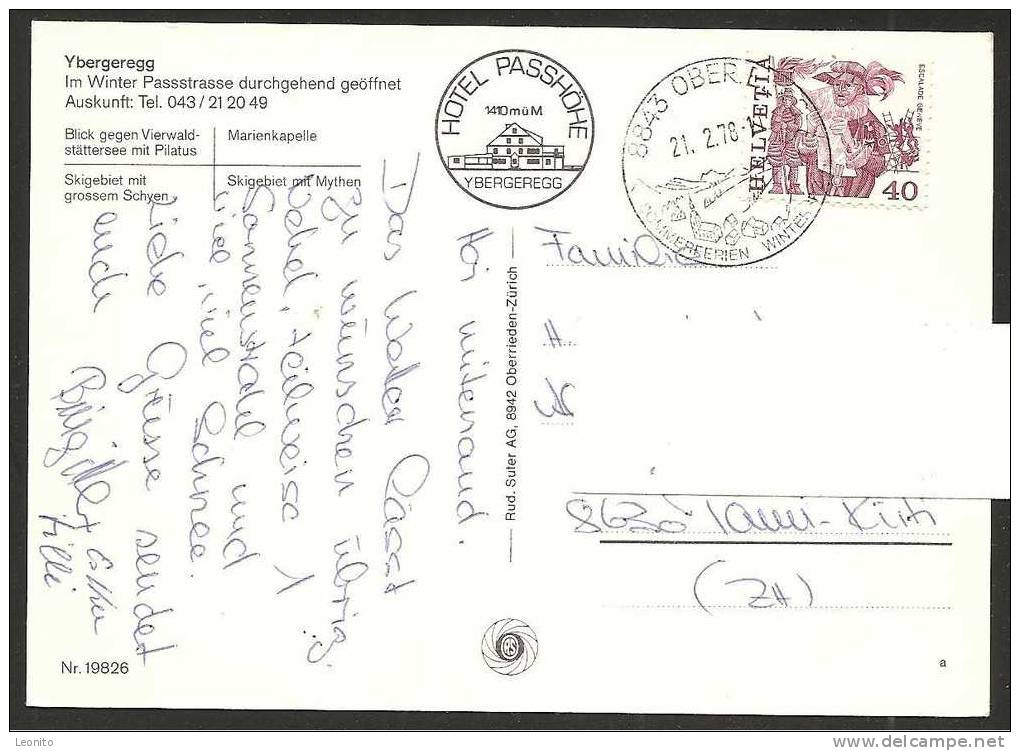 Ybergeregg
Im Winter Passstrasse durchgehend geöffnet
Auskunft: Tel. 043 / 21 20 49
Blick gegen Vierwald-
stättersee mit Pilatus
Marienkapelle
Skigebiet mit
grossem Schyen
Skigebiet mit Mythen
HOTEL PASSHÖHE
1410 m ü M
YBERGEREGG
8843 OBER
21. 2. 78
SOMMERFERIEN WINTER
HELVETIA
ESCALADE GENÈVE
40
Hoi mitenand.
Das Wetter lässt
zu wünschen übrig.
Nebel, teilweise 1
Sonnenstrahl und
viel, viel Schnee.
Liebe Grüsse sendet
euch
Familie
H.
8630 Tann-Rüti
(ZH)
Rud. Suter AG, 8942 Oberrieden-Zürich
Nr. 19826
a
Leonito
www.delcampe.net